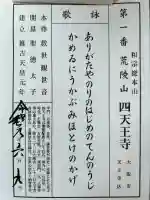 第一番 荒陵山 四天王寺
和宗総本山
大阪市
天王寺区
詠歌
ありがたやのりのはじめのてんのうじ
かめゐにうかぶみほとけのかげ
本尊 救世観世音
開基 聖徳太子
建立 推古天皇元年